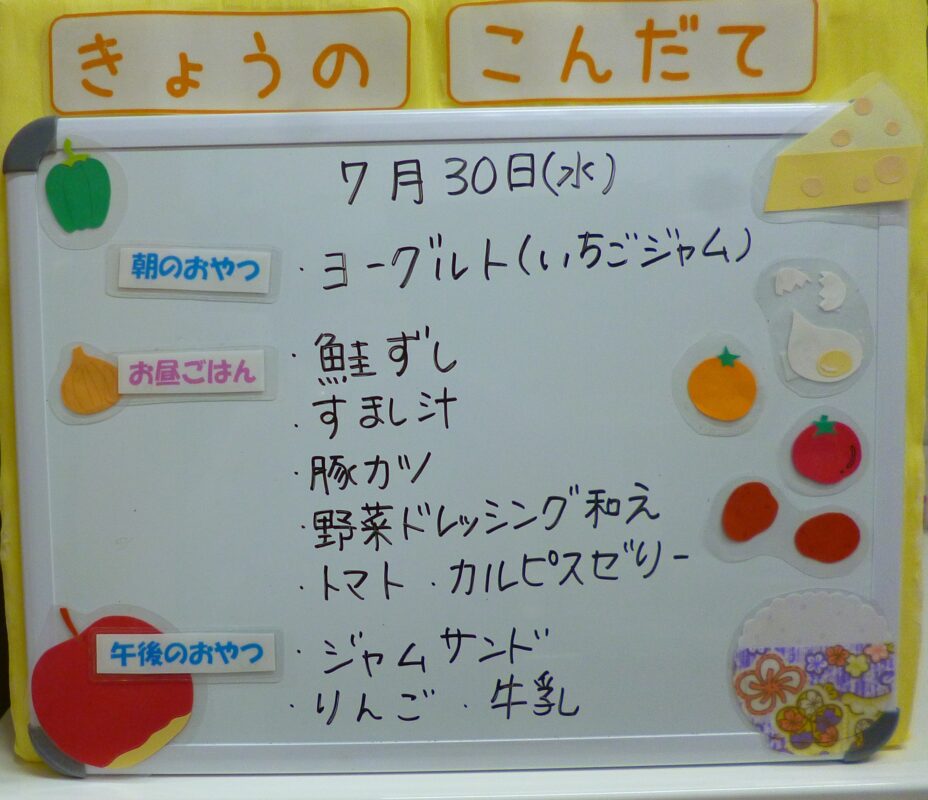 きょうの こんだて
7月30日(水)
朝のおやつ ・ヨーグルト(いちごジャム)
お昼ごはん ・鮭ずし
・すまし汁
・豚カツ
・野菜ドレッシング和え
・トマト ・カルピスゼリー
午後のおやつ ・ジャムサンド
・りんご ・牛乳